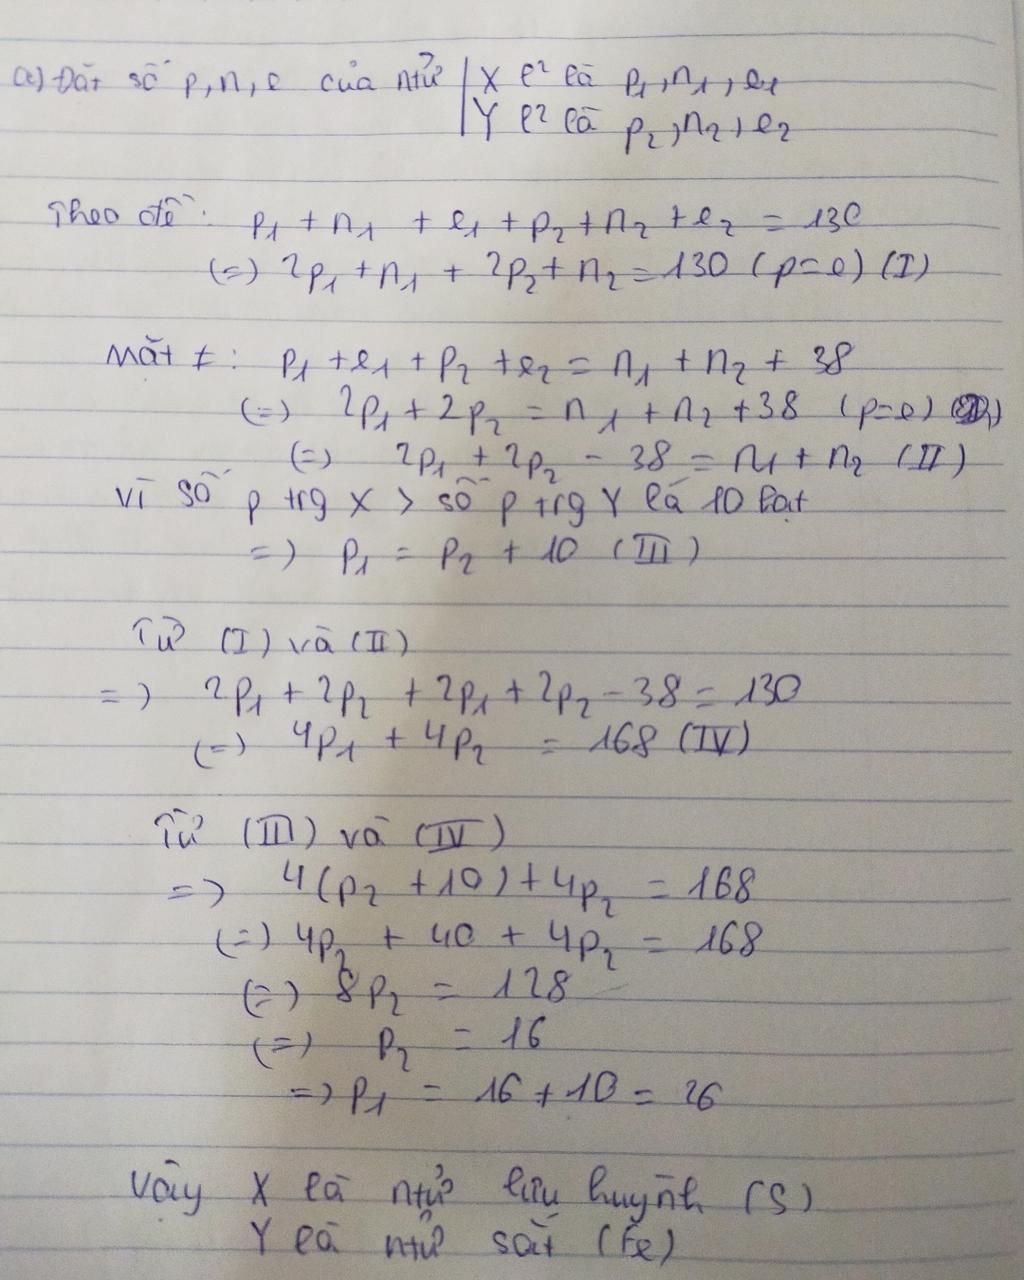 a) Đặt số p, n, e của ntử | X l² là p₁, n₁, e₁
| Y l² là p₂, n₂, e₂
Theo đề: p₁ + n₁ + e₁ + p₂ + n₂ + e₂ = 130
(=) 2p₁ + n₁ + 2p₂ + n₂ = 130 (p=e) (I)
Mặt ≠: p₁ + e₁ + p₂ + e₂ = n₁ + n₂ + 38
(=) 2p₁ + 2p₂ = n₁ + n₂ + 38 (p=e)
(=) 2p₁ + 2p₂ - 38 = n₁ + n₂ (II)
Vì số p trg X > số p trg Y là 10 hạt
=) p₁ = p₂ + 10 (III)
Từ (I) và (II)
=) 2p₁ + 2p₂ + 2p₁ + 2p₂ - 38 = 130
(=) 4p₁ + 4p₂ = 168 (IV)
Từ (III) và (IV)
=) 4(p₂ + 10) + 4p₂ = 168
(=) 4p₂ + 40 + 4p₂ = 168
(=) 8p₂ = 128
(=) p₂ = 16
=) p₁ = 16 + 10 = 26
Vậy X là ntử lưu huỳnh (S)
Y là ntử sắt (Fe)